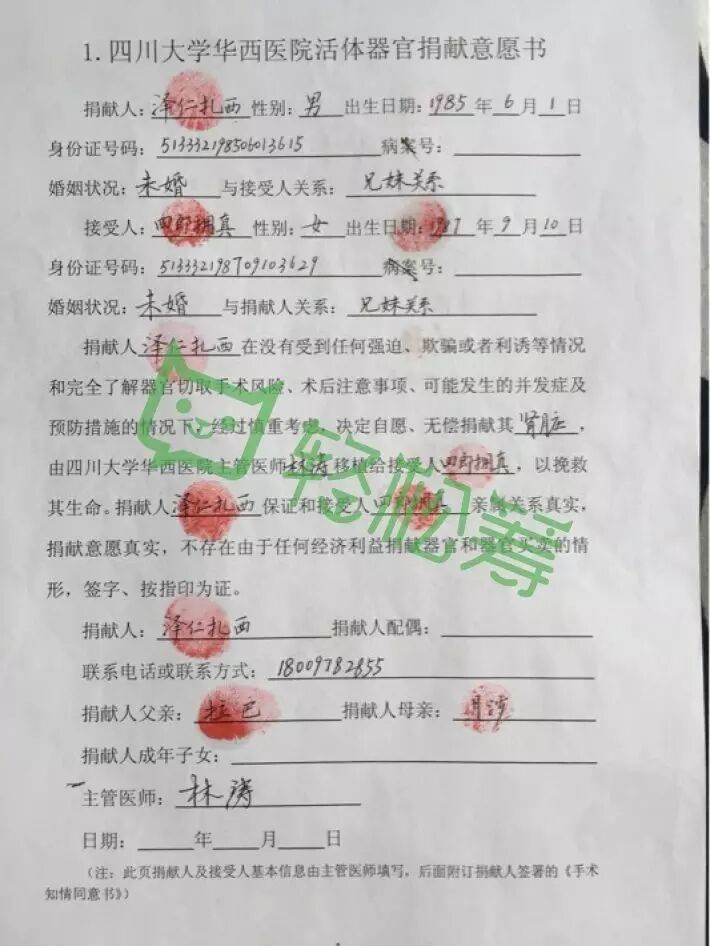 1.四川大学华西医院活体器官捐献意愿书
捐献人：泽仁扎西 性别：男 出生日期：1985 年 6 月 1 日
身份证号码：513332198506013615 病案号：
婚姻状况：未婚 与接受人关系：兄妹关系
接受人：四郎拥真 性别：女 出生日期：1987 年 9 月 10 日
身份证号码：513332198709103629 病案号：
婚姻状况：未婚 与捐献人关系：兄妹关系
捐献人泽仁扎西在没有受到任何强迫、欺骗或者利诱等情况
和完全了解器官切取手术风险、术后注意事项、可能发生的并发症及
预防措施的情况下，经过慎重考虑，决定自愿、无偿捐献其肾脏，
由四川大学华西医院主管医师林涛移植给接受人四郎拥真，以挽救
其生命。捐献人泽仁扎西保证和接受人四郎拥真亲属关系真实，
捐献意愿真实，不存在由于任何经济利益捐献器官和器官买卖的情
形，签字、按指印为证。
捐献人：泽仁扎西 捐献人配偶：
联系电话或联系方式：18009782855
捐献人父亲：拉巴 捐献人母亲：
捐献人成年子女：
主管医师：林涛
日期： 年 月 日
（注：此页捐献人及接受人基本信息由主管医师填写，后面附订捐献人签署的《手术
知情同意书》）
轻松筹